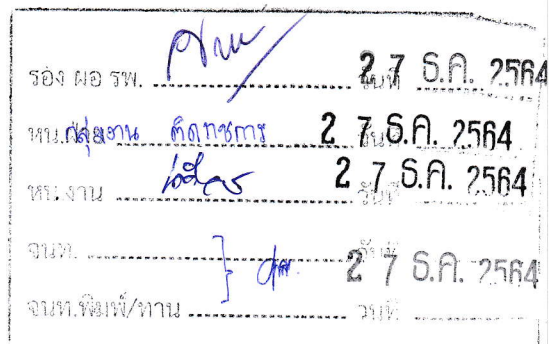 รอง ผอ รพ. วันที่ 27 ธ.ค. 2564
หน.กลุ่มงาน วันที่ 27 ธ.ค. 2564
หน.งาน วันที่ 27 ธ.ค. 2564
จนท. วันที่ 27 ธ.ค. 2564
จนท.พิมพ์/ทาน วันที่